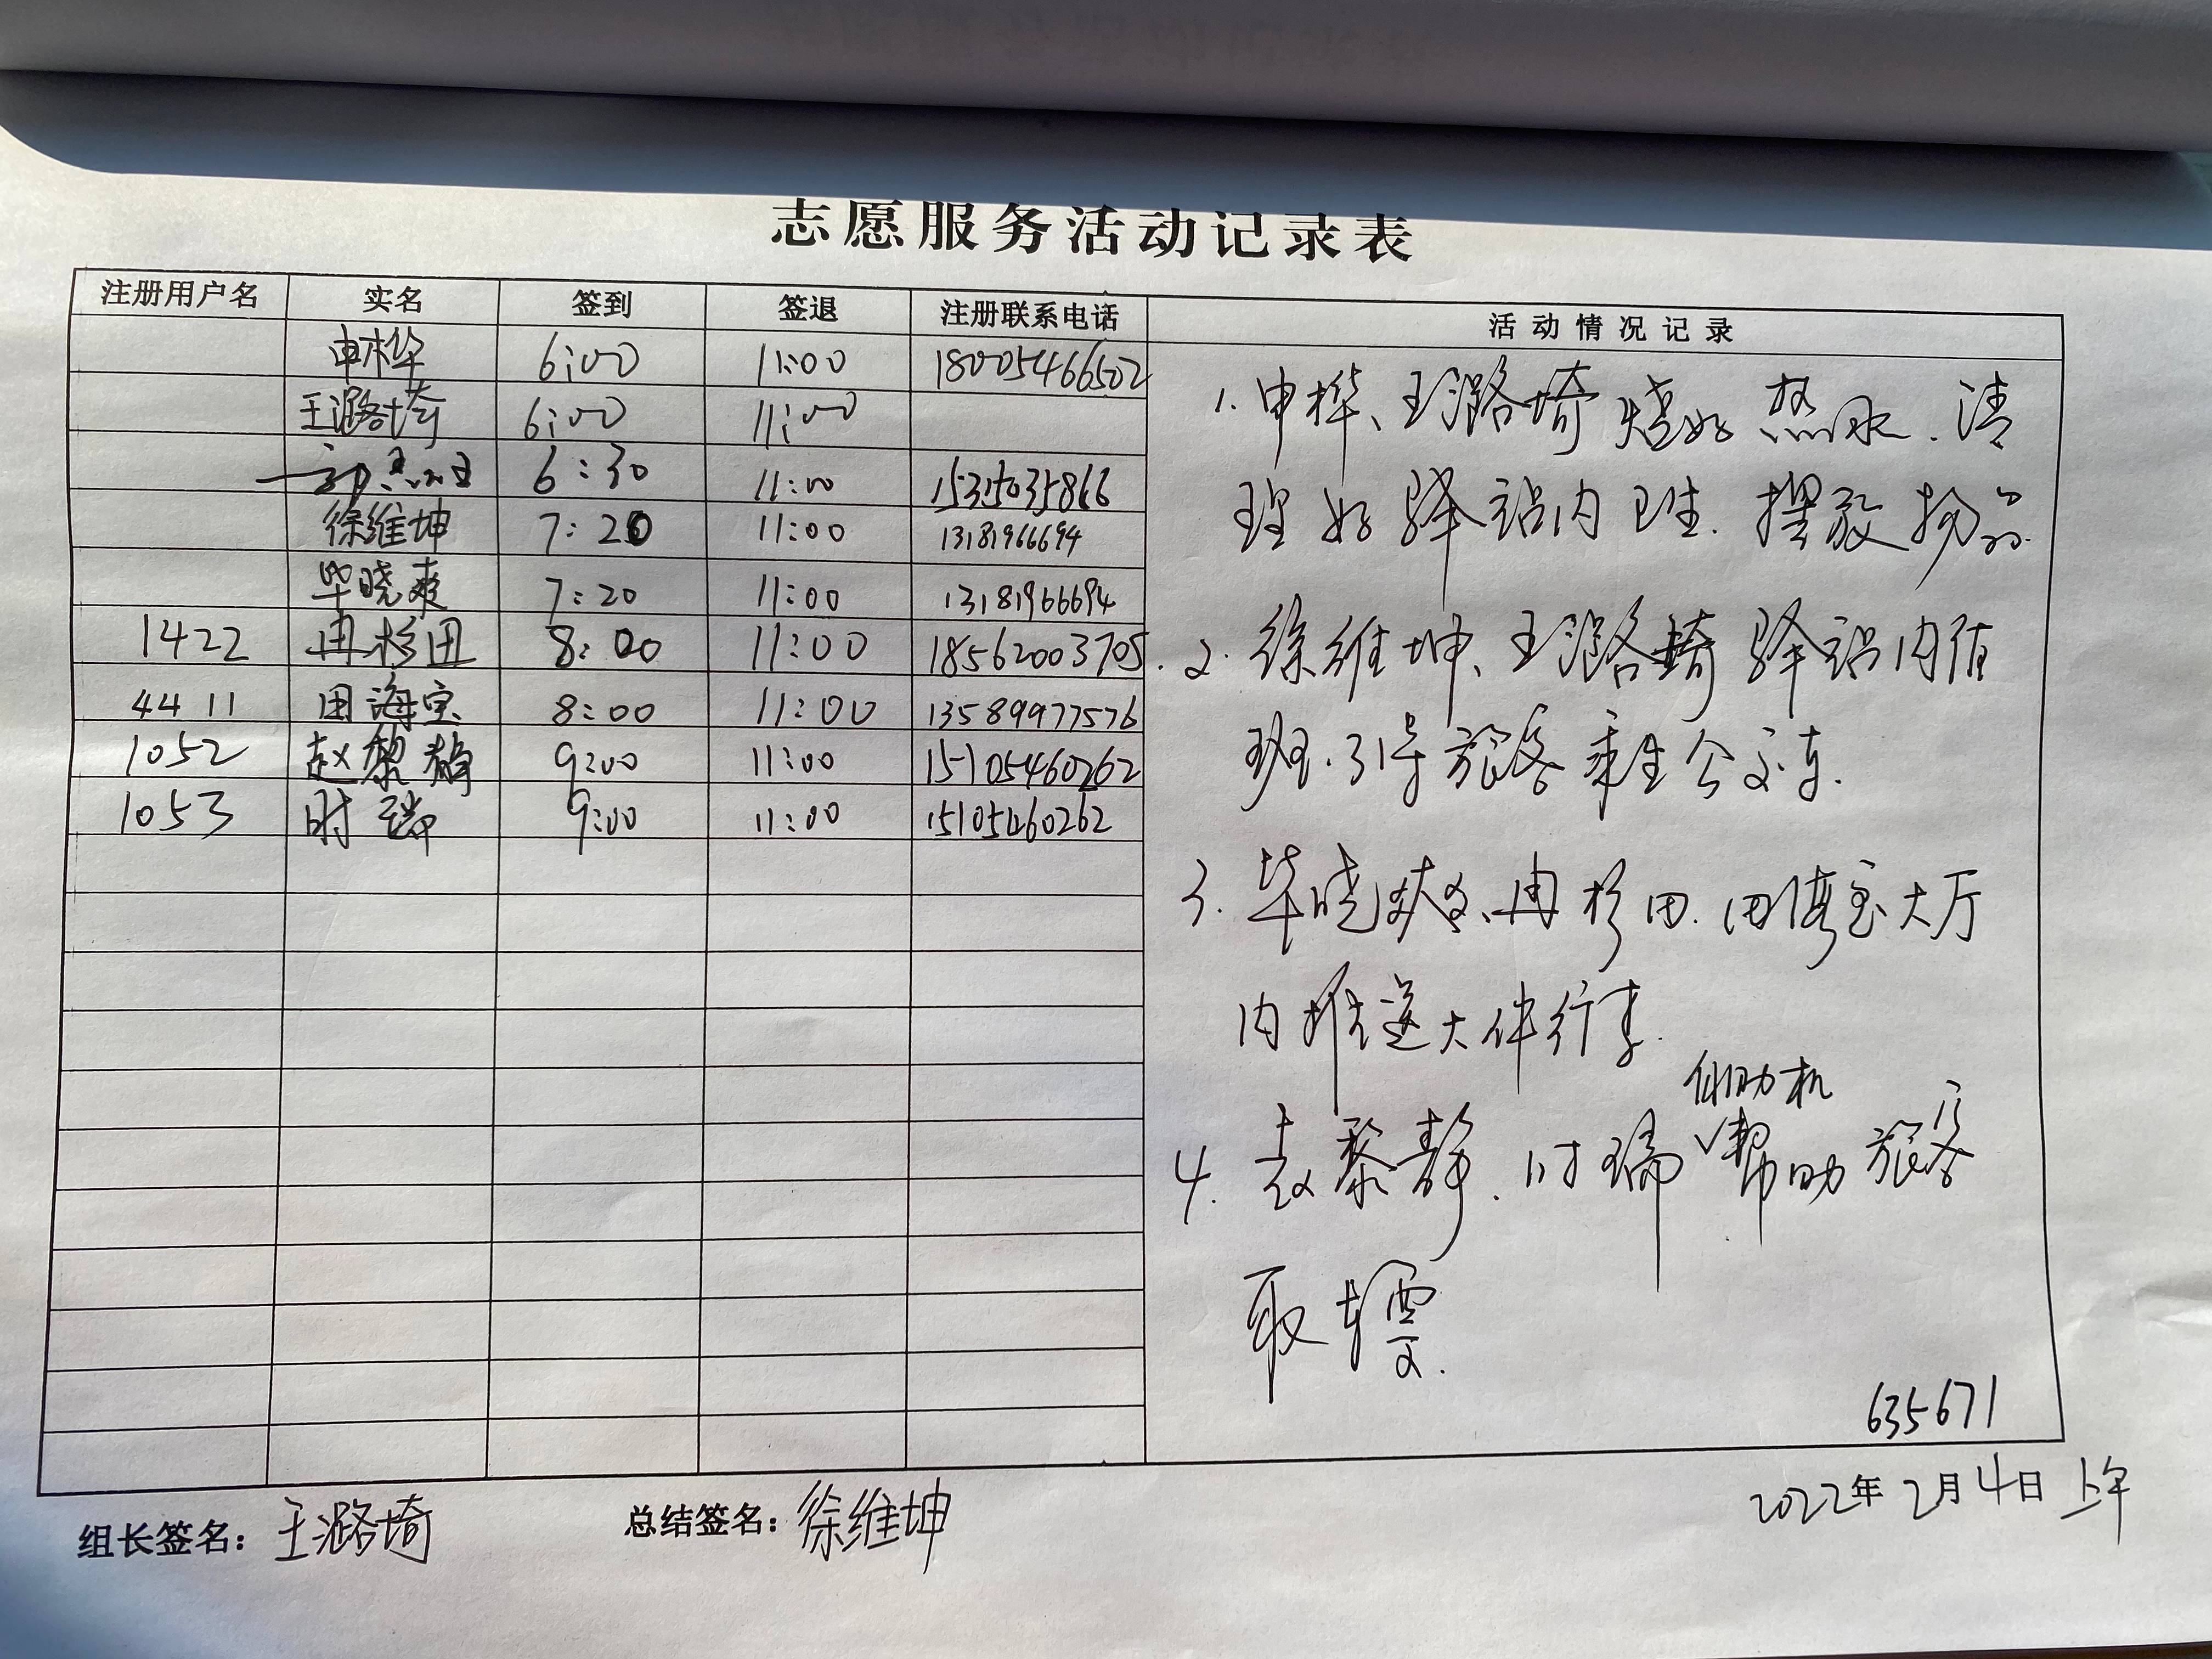 志愿服务活动记录表
注册用户名 实名 签到 签退 注册联系电话 活动情况记录
申桦 6:00 11:00 18005466502
王潞埼 6:00 11:00
6:30 11:00 15315035866
徐维坤 7:20 11:00 13181966694
毕晓爽 7:20 11:00 13181966694
1422 冉杉田 8:00 11:00 18562003705
4411 田海宝 8:00 11:00 13589977576
1052 赵黎静 9:00 11:00 15105460262
1053 时瑞 9:00 11:00 15105460262
1. 申桦、王潞埼烧好热水.清
理好驿站内卫生.摆放物品.
2. 徐维坤、王潞埼驿站内值
班.引导旅客乘坐公交车.
3. 毕晓爽、冉杉田.田海宝大厅
内推送大件行李.
助机
4. 赵黎静.时瑞帮助旅客
取车票.
635671
2022年2月4日 上午
组长签名：王潞埼 总结签名：徐维坤